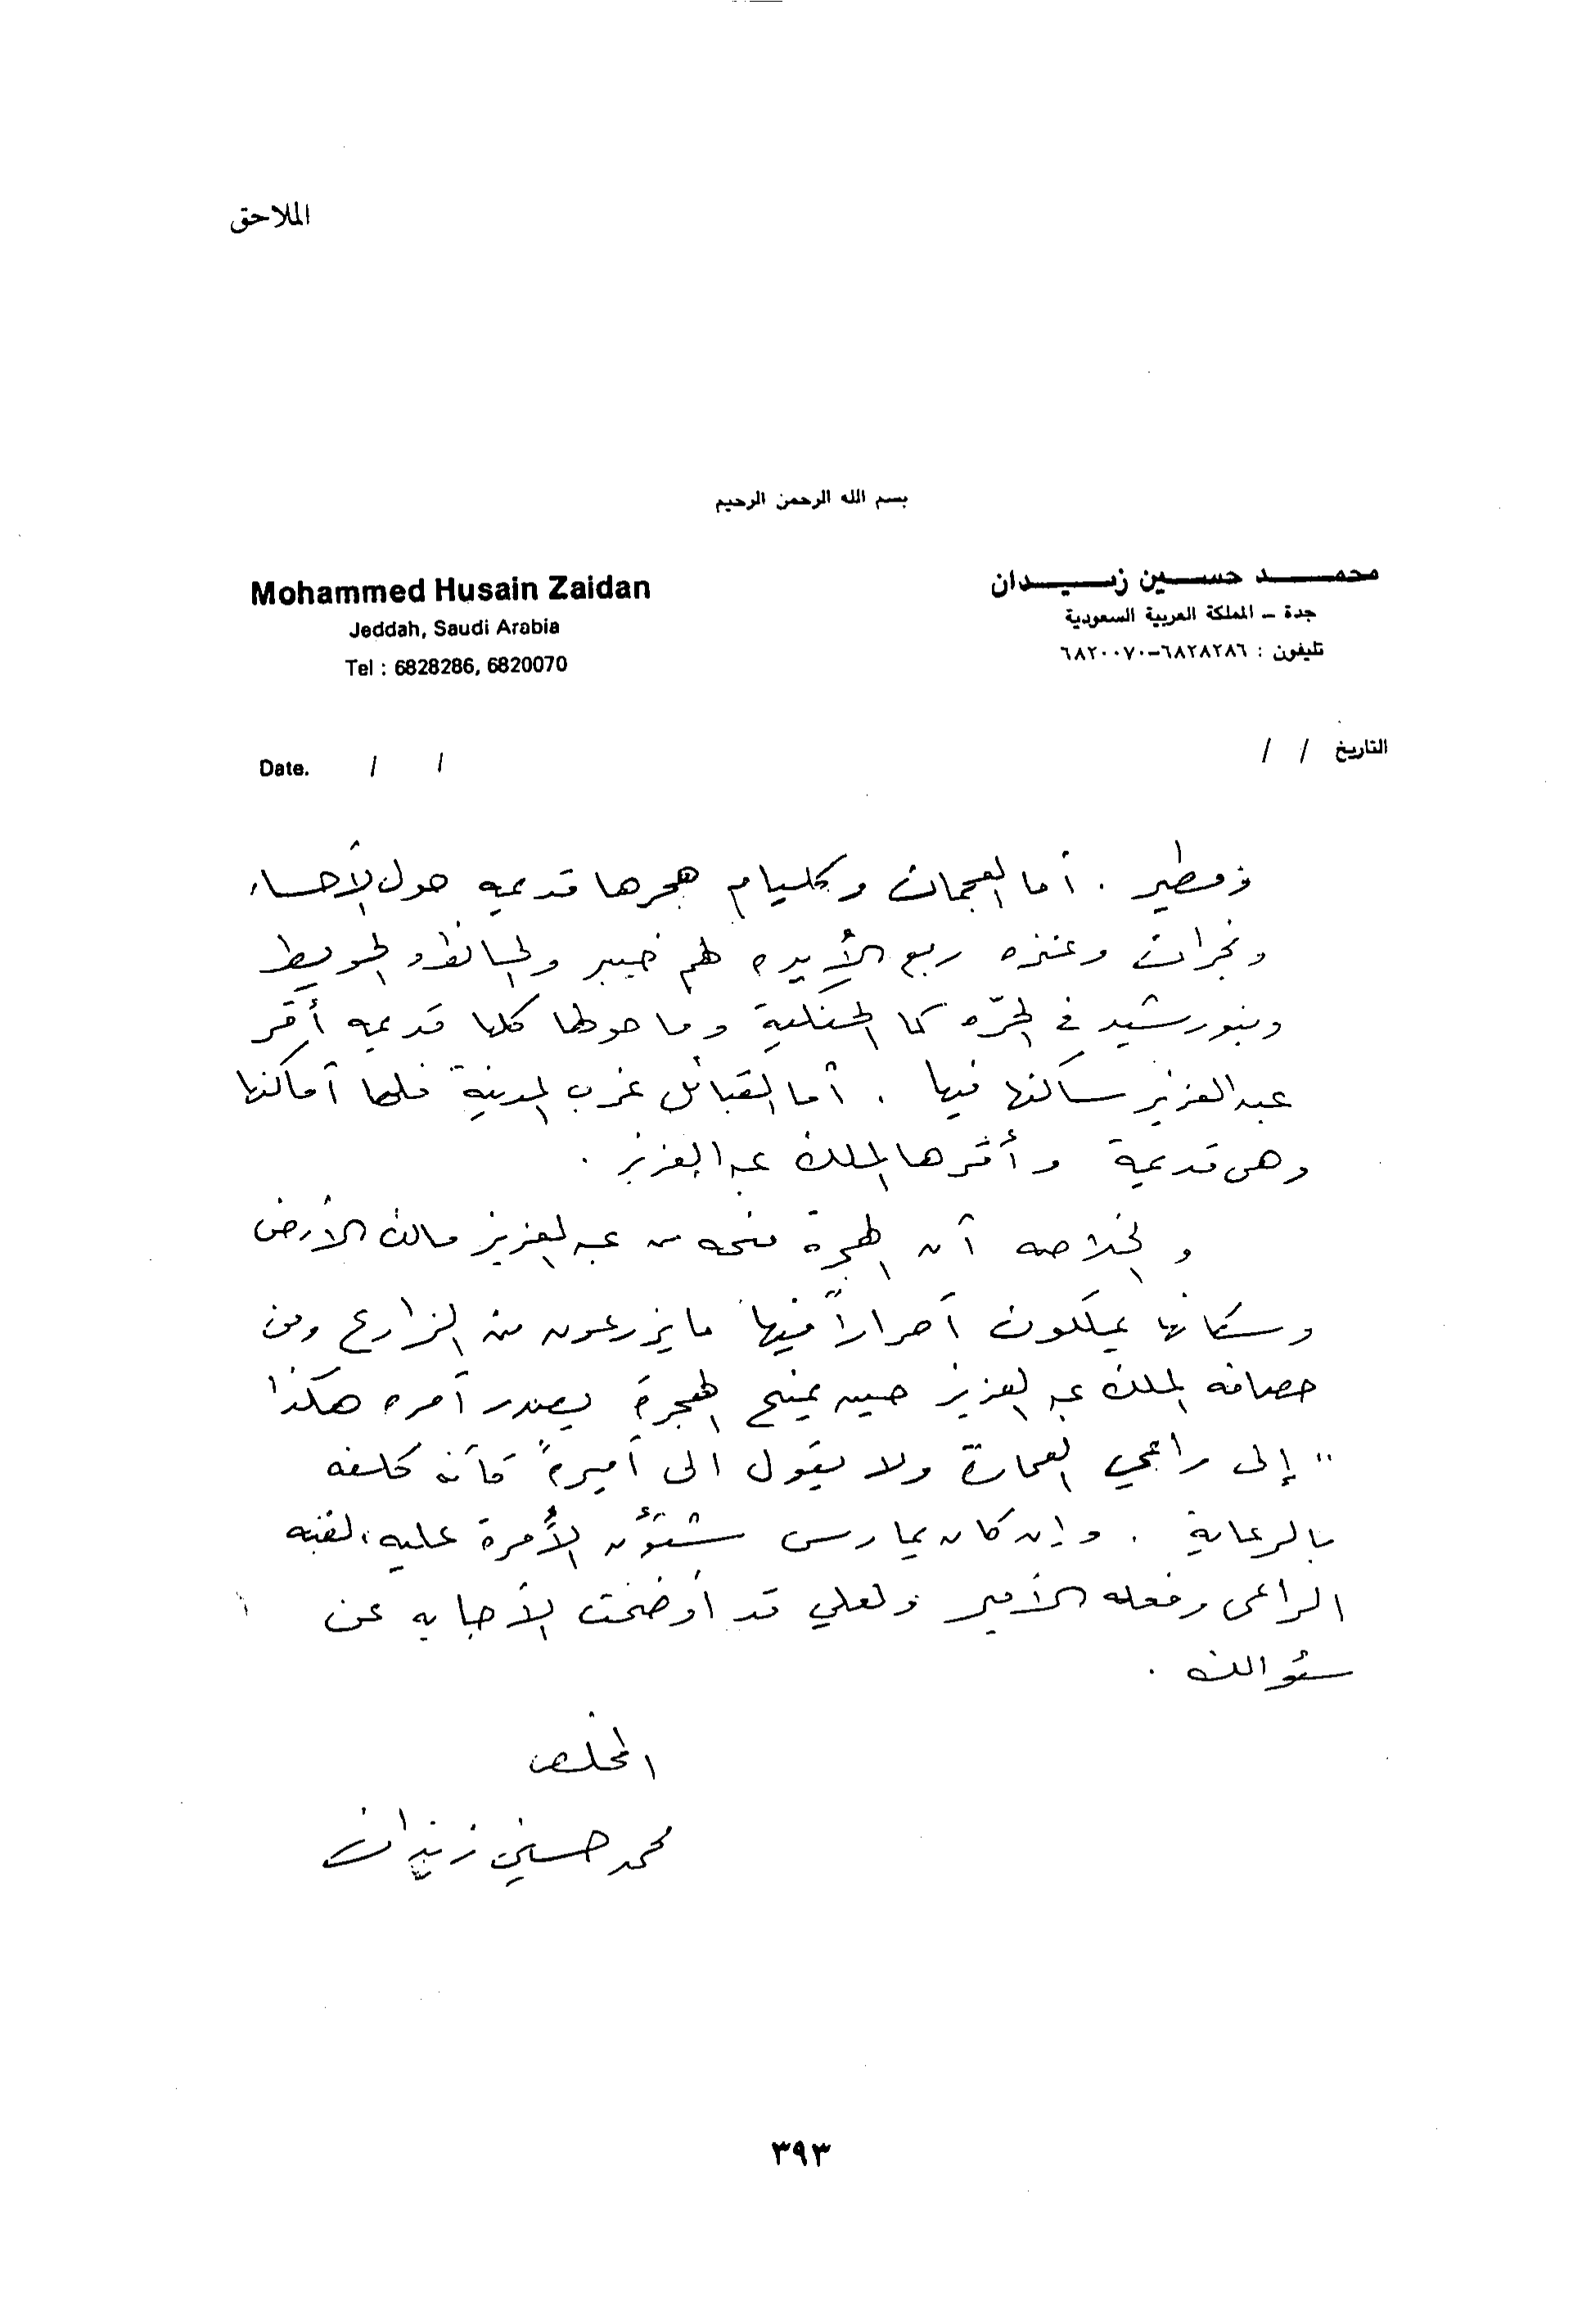 الملاحق
بسم الله الرحمن الرحيم
محمد حسين زيدان
جدة - المملكة العربية السعودية
تليفون : ٦٨٢٨٢٨٦-٦٨٢٠٠٧٠
Mohammed Husain Zaidan
Jeddah, Saudi Arabia
Tel : 6828286, 6820070
التاريخ / /
Date. / /
ومطير . أما العجمان وكل يام هجرها قديمه حول الأحساء
ونجران وعنزه ربع الأيده لهم خيبر والحائط والحويط
وبنو رشيد في الحرّه كما الحنفلية وما حولها كلها قديمه أقر
عبد العزيز ساكنها فيها . أما القبائل غرب المدينة فلها أماكنها
وهى قديمة وأقرها الملك عبد العزيز .
والخلاصه أن الهجرة منحه من عبد العزيز مالك الأرض
وسكانها يملكون أحراراً فيها ما يزرعون من المزارع ومن
حصافه الملك عبد العزيز حين يمنح الهجرة يصدر أمره هكذا
" إلى راعي العمارة ولا يقول الى أميره فأنه كلفه
بالرعاية . وإن كان يمارس شئون الأمرة عليه، لقبه
الراعى وفعله الأمير ولعلي قد أوضحت الأجابه عن
سئوالك .
المخلص
محمد حسين زيدان
٣٩٣